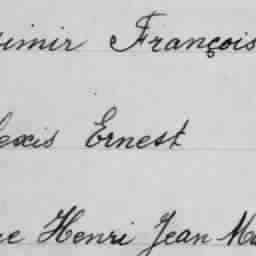 imir François
lexis Ernest
e Henri Jean Ma